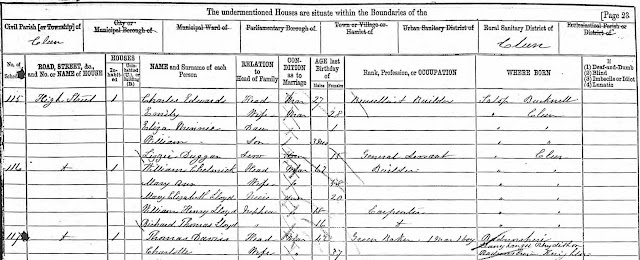 The undermentioned Houses are situate within the Boundaries of the
[Page 23
Civil Parish [or Township] of
City or Municipal Borough of
Municipal Ward of
Parliamentary Borough of
Town or Village or Hamlet of
Urban Sanitary District of
Rural Sanitary District of
Ecclesiastical Parish or District of
Clun Clun
No. of Schedule
ROAD, STREET, &c., and No. or NAME of HOUSE
HOUSES
Inhabited
NAME and Surname of each Person
RELATION to Head of Family
CONDITION as to Marriage
AGE last Birthday of
Males Females
Rank, Profession, or OCCUPATION
WHERE BORN
If
(1) Deaf-and-Dumb
(2) Blind
(3) Imbecile or Idiot
(4) Lunatic
115 High Street 1 Charles Edwards Head Mar 27 Builder Salop Bucknell
Emily Wife Mar 28 " Clun
Eliza Minnie Daur 1 " "
William " Son " "
Lizzie Duggan Serv 15 General Servant " Clun
116 " 1 William Head Mar 62 Builder " "
Mary Ann Wife " "
Mary Elizabeth Lloyd Niece 20 " "
William Henry Lloyd Nephew 18 Carpenter " "
Richard Thomas Lloyd " 16 " " "
117 " 1 Thomas Davies Head Mar Baker 1 man 1 boy Radnorshire
Charlotte Wife " 37 Radnorshire Knighton